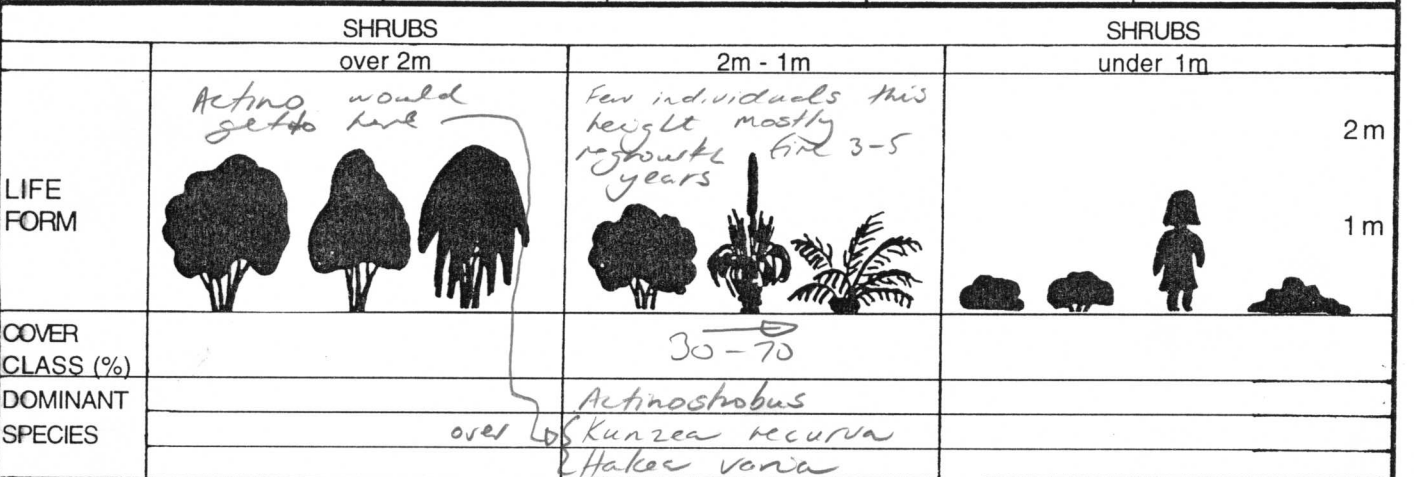 SHRUBS
SHRUBS
over 2m
2m - 1m
under 1m
Actino would
get to here
Few individuals this
height mostly
regrowth fire 3-5
years
2m
LIFE
FORM
1m
COVER
CLASS (%)
30-70
DOMINANT
SPECIES
Actinostrobus
over Kunzea recurva
Hakea varia